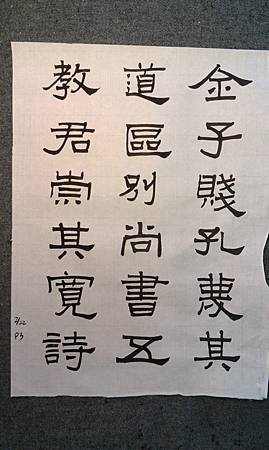 金子賤孔蔑其
道區別尚書五
教君崇其寬詩
P3